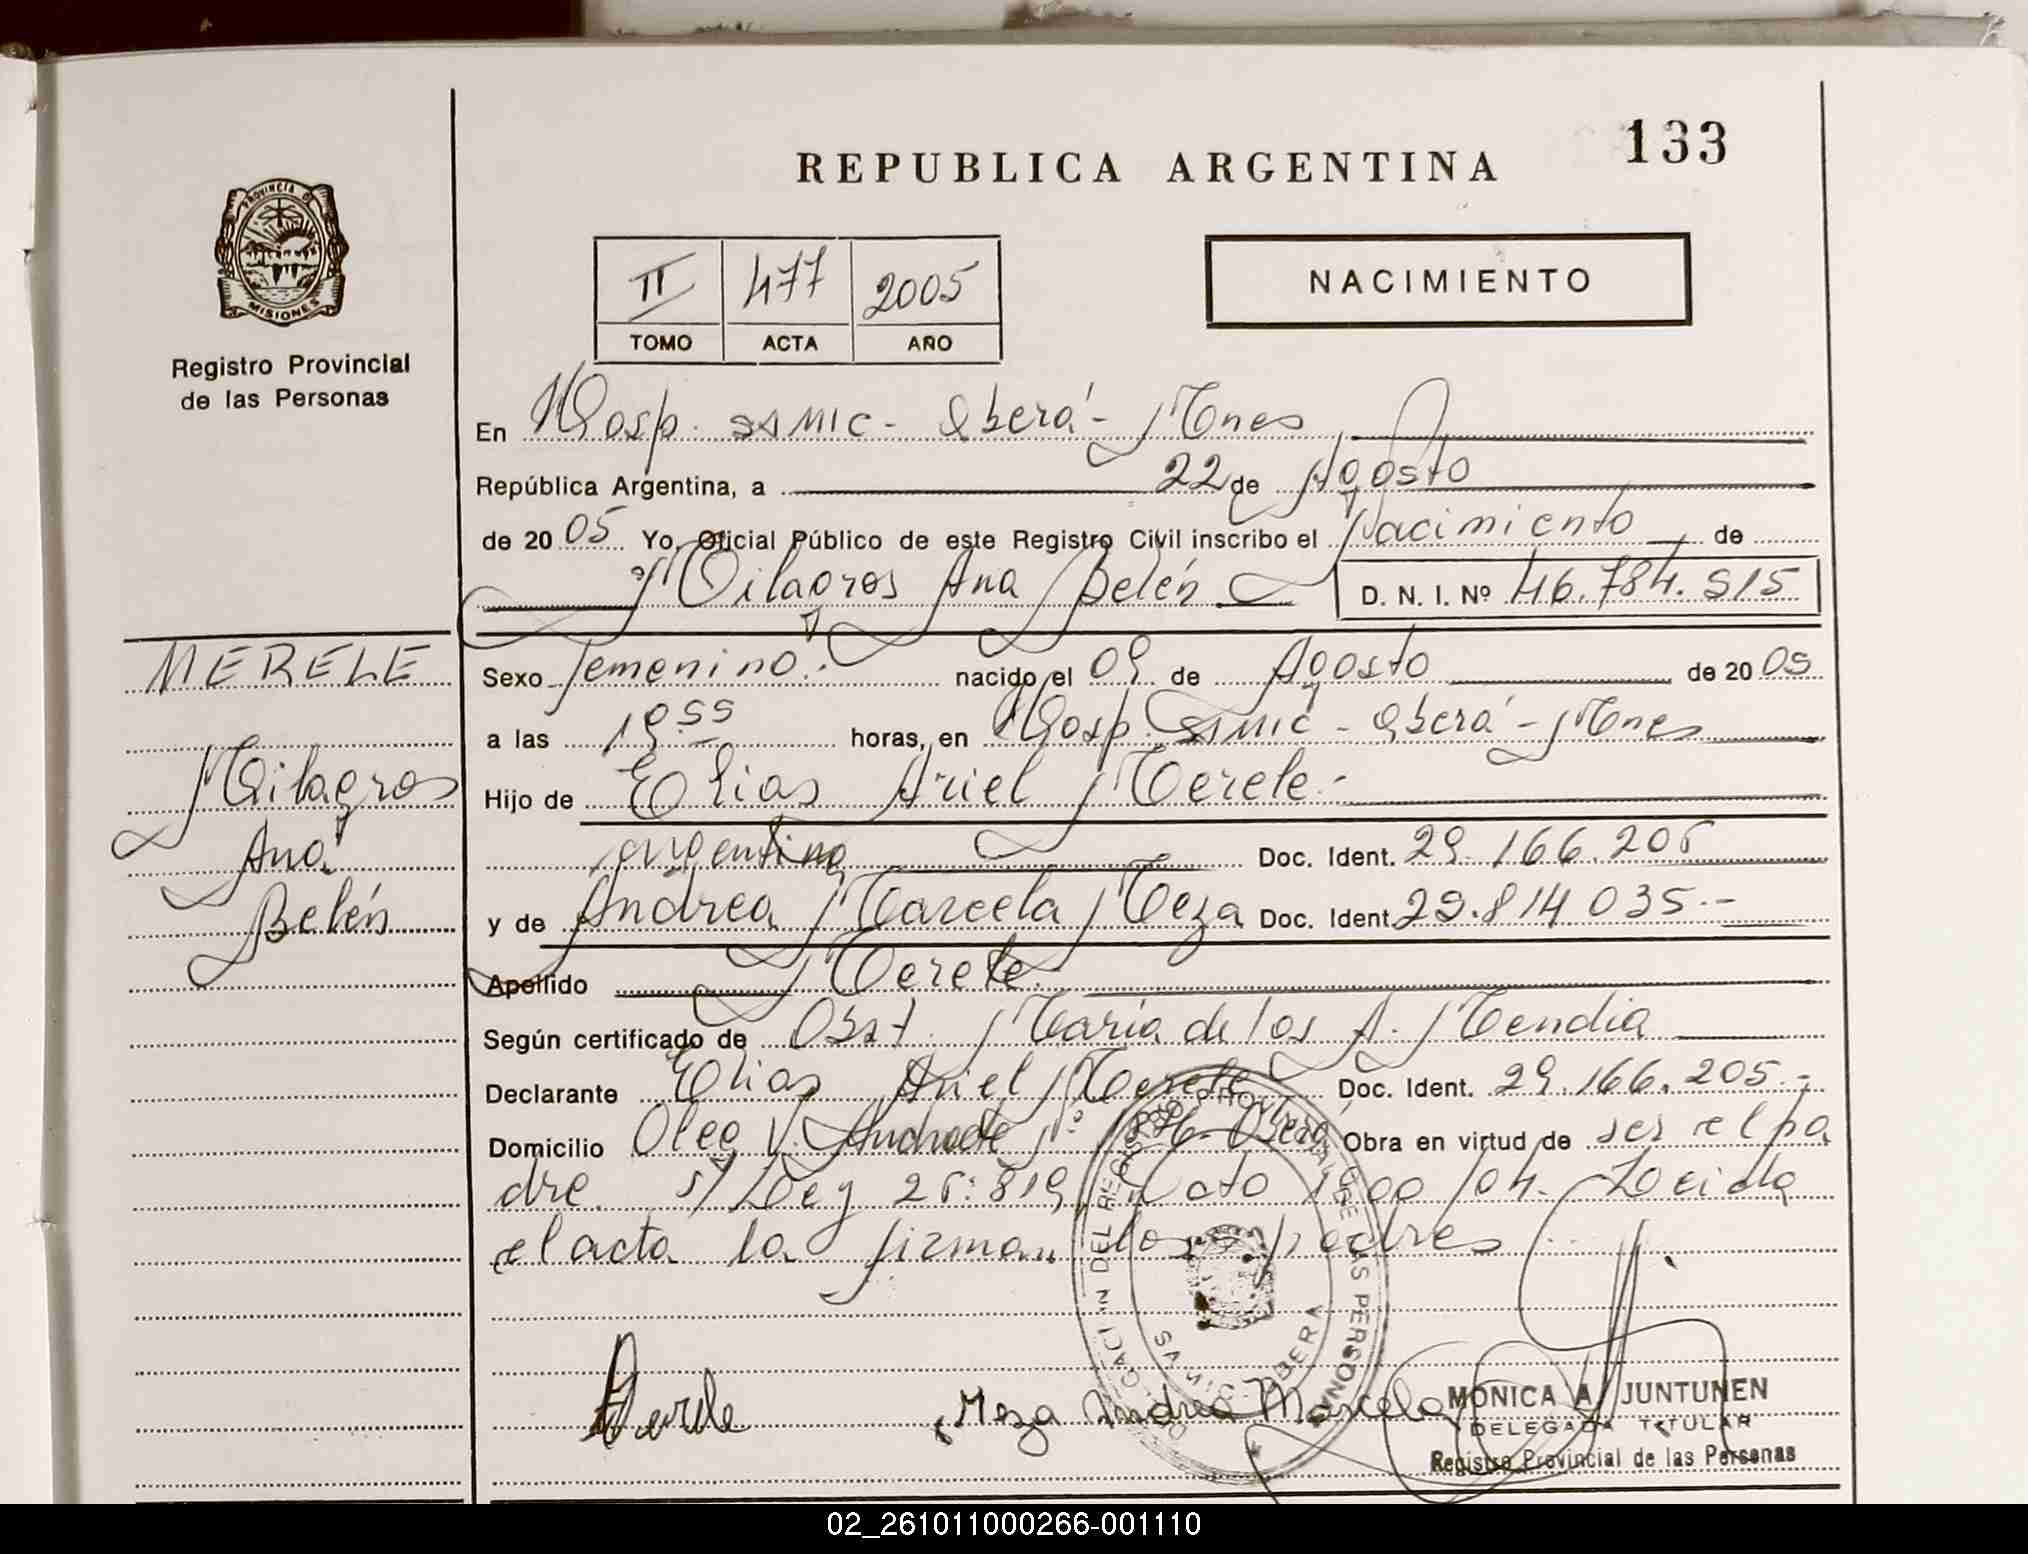 133
REPUBLICA ARGENTINA
PROVINCIA D
MISIONES
Registro Provincial
de las Personas
II 477 2005
TOMO ACTA AÑO
NACIMIENTO
En Hosp. SSMIC - Oberá - Mnes
República Argentina, a 22 de Agosto
de 2005 Yo, Oficial Público de este Registro Civil inscribo el Nacimiento de
Milagros Ana Belén D. N. I. Nº 46.784.515
MERELE
Milagros
Ana
Belén
Sexo femenino. nacido el 09 de Agosto de 2005
a las 19⁵⁵ horas, en Hosp. SSMIC - Oberá - Mnes
Hijo de Elias Ariel Merele.-
argentino Doc. Ident. 29.166.205
y de Andrea Marcela Meza Doc. Ident. 29.814.035.-
Apellido Merele.
Según certificado de Obst. María de los A. Mendia
Declarante Elias Ariel Merele Doc. Ident. 29.166.205.-
Domicilio Oleg V. Andrade Nº Oberá Obra en virtud de ser el pa
dre. s/ Ley 25.819, Dcto 1900/04. Leida
el acta la firman los padres
Merele Meza Andrea Marcela
MONICA A. JUNTUNEN
DELEGADA TITULAR
Registro Provincial de las Personas
DEL REGISTRO PROVINCIAL DE LAS PERSONAS
OBERA
02_261011000266-001110